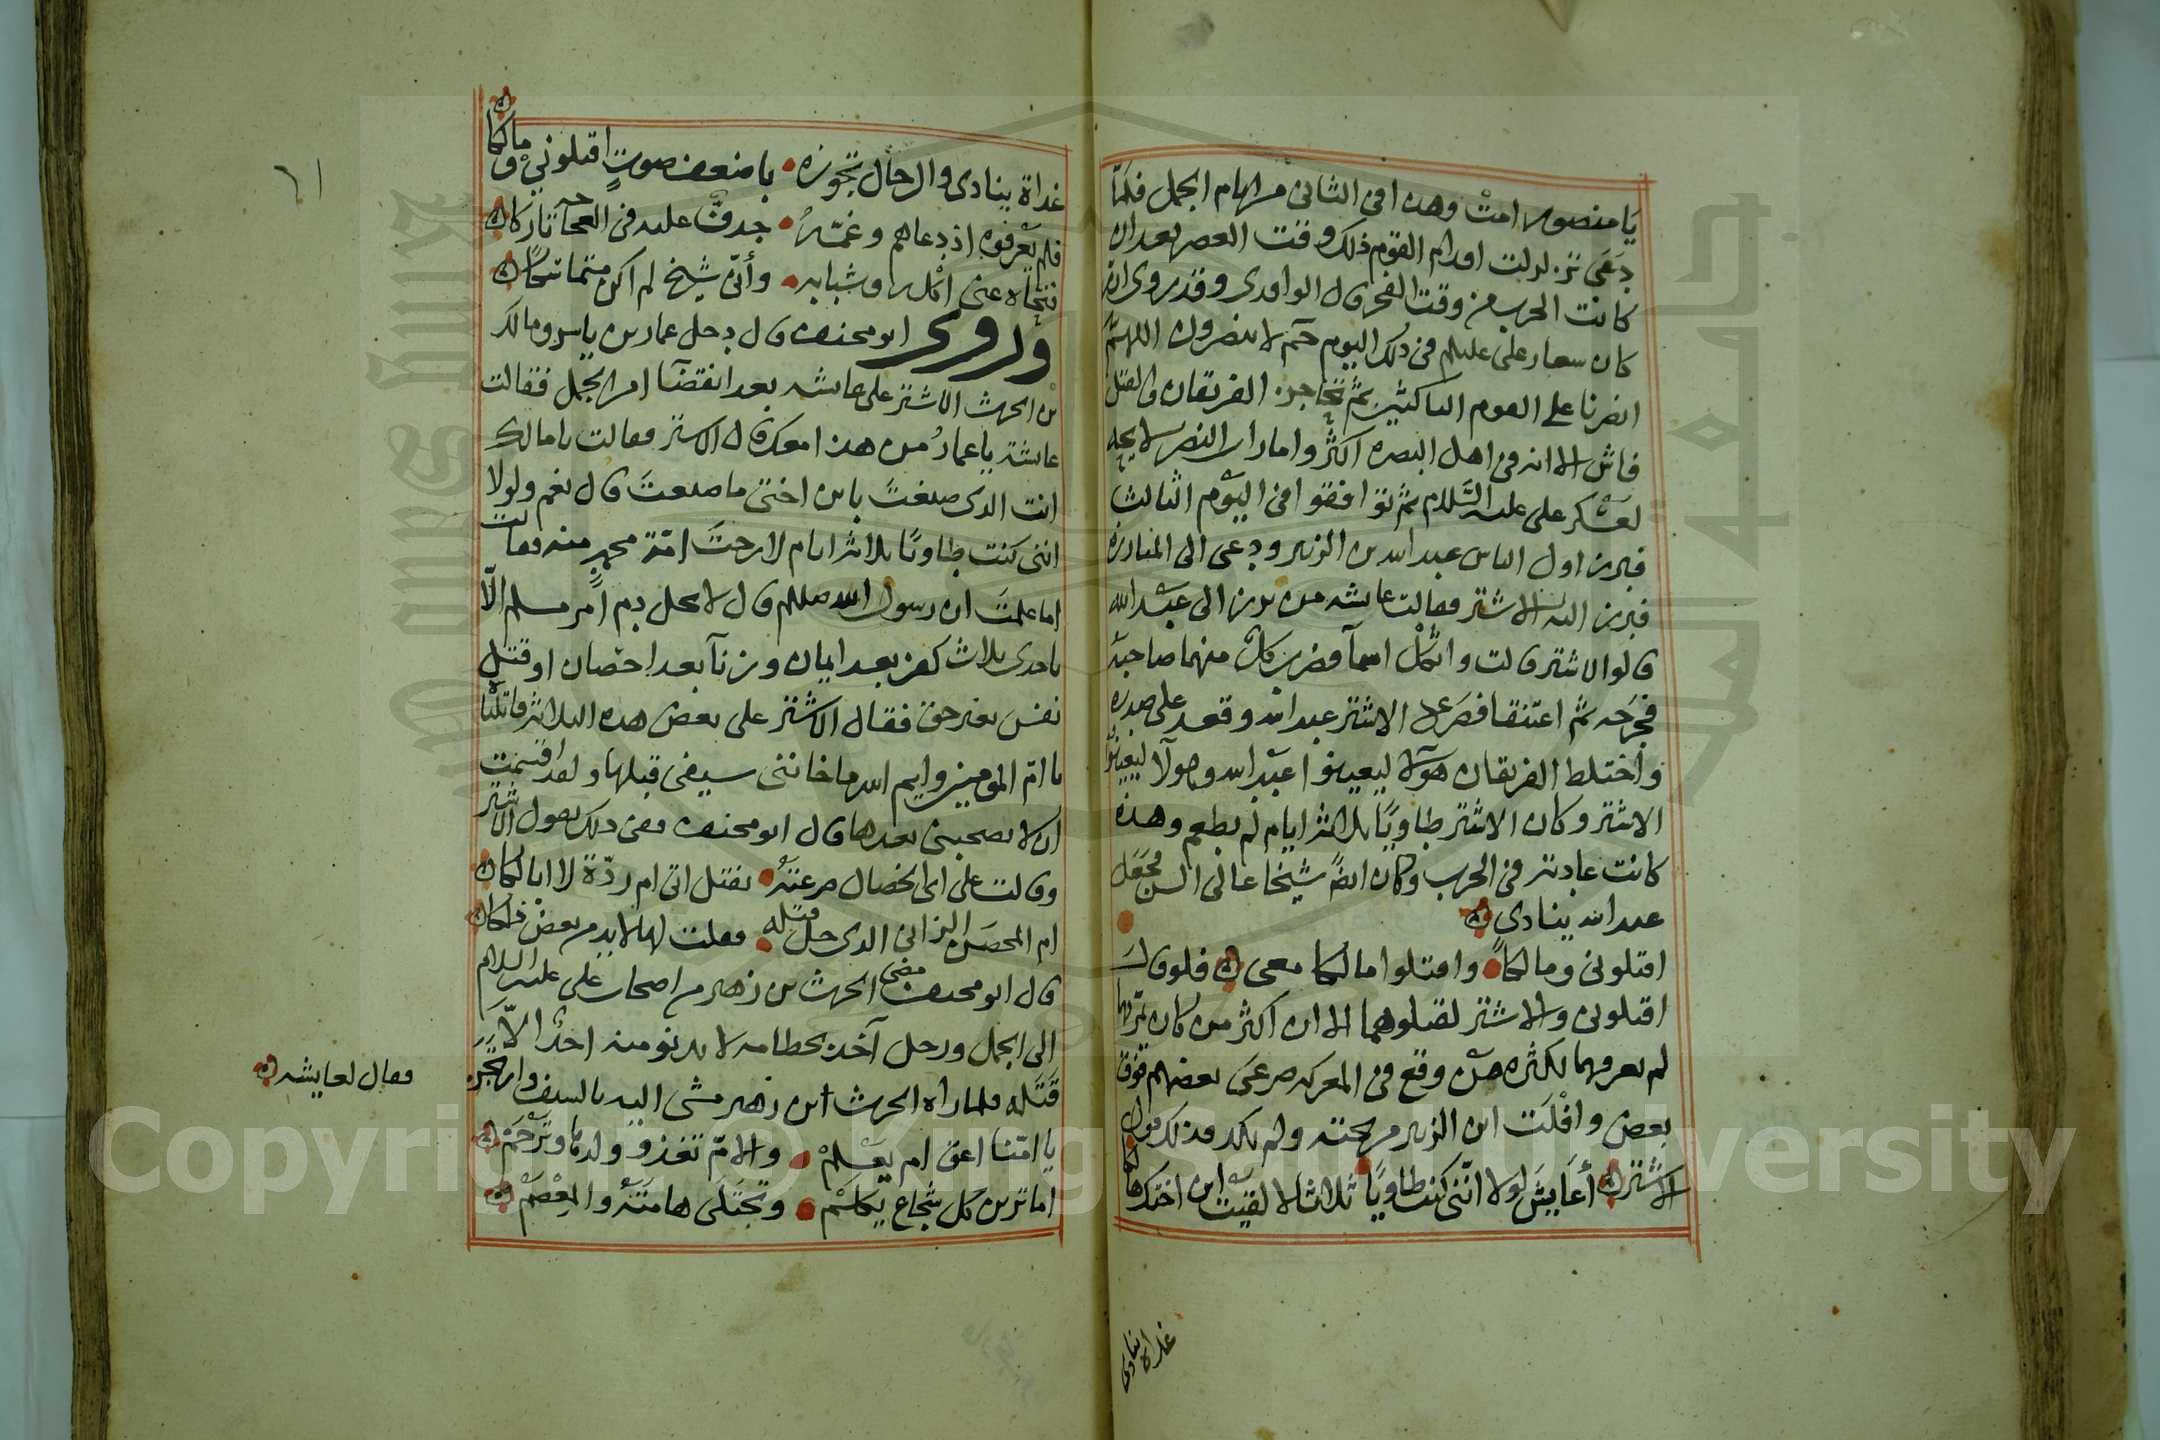 يا منصور امت وهذا في الثاني من ايام الجمل فلما
دعى تزلزلت اقدام القوم ذلك وقت العصر بعد ان
كانت الحرب من وقت الفجر قال الواقدي وقد روى ان
كان شعار علي عليلم في ذلك اليوم حم لا ينصرون اللهم
انصرنا على القوم الناكثين ثم تحاجز الفريقان والقتل
فاش الا انه في اهل البصره اكثر وامارات النصر لايحه
لعسكر علي عليه السلام ثم تواقفوا في اليوم الثالث
فبرز اول الناس عبد الله بن الزبير ودعى الى المبارزة
فبرز اليه الاشتر فقالت عايشه من برز الى عبد الله
قالوا الاشتر قالت واثكل اسمآ فضرب كل منهما صاحبه
فجرحه ثم اعتنقا فصرع الاشتر عبد الله وقعد على صدره
واختلط الفريقان هولآ ليعينوا عبد الله وهولآ ليعينوا
الاشتر وكان الاشتر طاويًا ثلاثة ايام لم يطعم وهذه
كانت عادته في الحرب وكان ايضًا شيخا عالى السن فجعل
عبد الله ينادي
اقتلوني ومالكًا واقتلوا مالكا معي فلو قال
اقتلوني والاشتر لقتلوهما الا ان اكثر من كان يمر بهما
لم يعرفهما لكثره من وقع في المعركه صرعى بعضهم فوق
بعض وافلت ابن الزبير من تحته ولم يكد فذلك قول
الاشتر أعايش لولا انني كنت طاويًا ثلاثا لالفيت ابن اختك هالكا
غداة ينادي
غداة ينادي والرجال تحوزه باضعف صوتٍ اقتلوني ومالكا
فلم يعرفوه اذ دعاهم وغمه خدب عليه في العجاجة باركا
فنجاه عني اكله وشبابه وأني شيخ لم اكن متماسكًا
وروى ابو مخنف قال دخل عمار بن ياسر ومالك
بن الحرث الاشتر على عايشه بعد انقضآ امر الجمل فقالت
عايشة يا عمار من هذا معك قال الاشتر فقالت يا مالك
انت الذي صنعت بابن اختي ما صنعت قال نعم ولولا
انني كنت طاويًا ثلاثة ايام لارحت امة محمدٍ منه فقالت
اما علمت ان رسول الله صللم قال لا يحل دم امرٍ مسلم الّا
باحدى ثلاث كفر بعد ايمان وزنآ بعد احصان او قتل
نفس بغير حق فقال الاشتر على بعض هذه الثلاثة قاتلنا
يا ام المومنين وايم الله ما خانني سيفي قبلها ولقد اقسمت
ان لا يصحبني بعدها قال ابو مخنف ففي ذلك يقول الاشتر
وقالت على اي الخصال صرعته بقتل اتى ام ردّة لا ابا لكا
ام المحصن الزاني الذي حل قتله فقلت لها لا بد من بعض ذلكا
قال ابو مخنف مضى الحرث بن زهير من اصحاب علي عليه السلام
الى الجمل ورجل آخذ بخطامه لا يدنو منه احدٌ الّا
قتله فلما راه الحرث ابن زهير مشى اليه بالسيف وارتجز
فقال لعايشه
يا امنا اعق ام يعلمْ والام تغذو ولدها وترحم
اما ترين كل شجاع يكلمْ وتجتلى هامته والمعصم